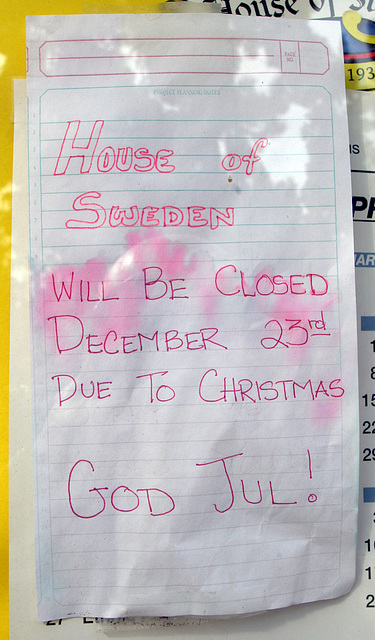 House of
193
PAGE NO.
PROJECT PLANNING NOTES
HOUSE of
SWEDEN
WILL BE CLOSED
DECEMBER 23rd
DUE TO CHRISTMAS
GOD JUL!
IS
1
8
15
22
29
1
2
27